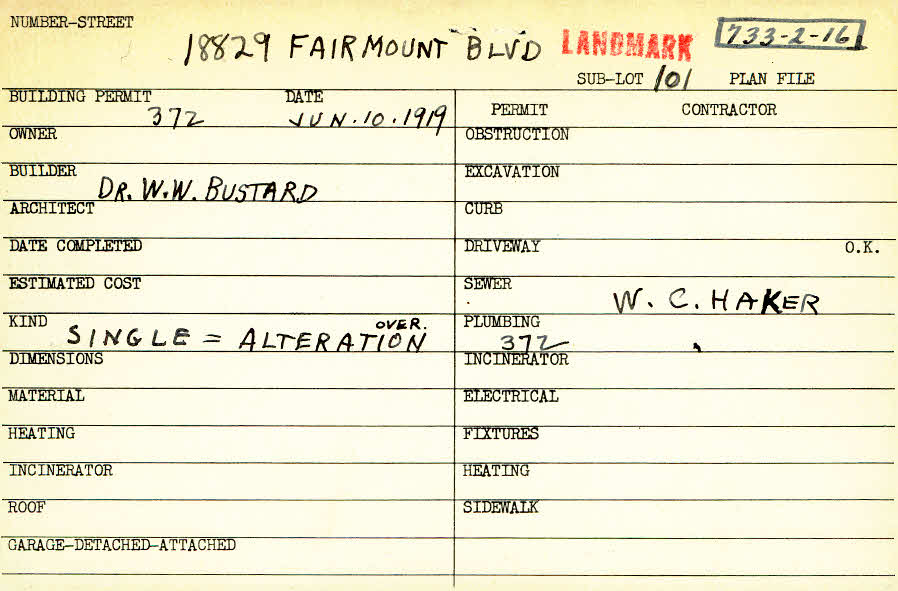 NUMBER-STREET
18829 FAIRMOUNT BLVD LANDMARK 733-2-16
SUB-LOT 101 PLAN FILE
BUILDING PERMIT DATE
372 JUN. 10. 1919
PERMIT CONTRACTOR
OWNER
OBSTRUCTION
BUILDER
DR. W.W. BUSTARD
EXCAVATION
ARCHITECT
CURB
DATE COMPLETED
DRIVEWAY O.K.
ESTIMATED COST
SEWER
W. C. HAKER
KIND
SINGLE = ALTERATION OVER.
PLUMBING
372
DIMENSIONS
INCINERATOR
MATERIAL
ELECTRICAL
HEATING
FIXTURES
INCINERATOR
HEATING
ROOF
SIDEWALK
GARAGE-DETACHED-ATTACHED